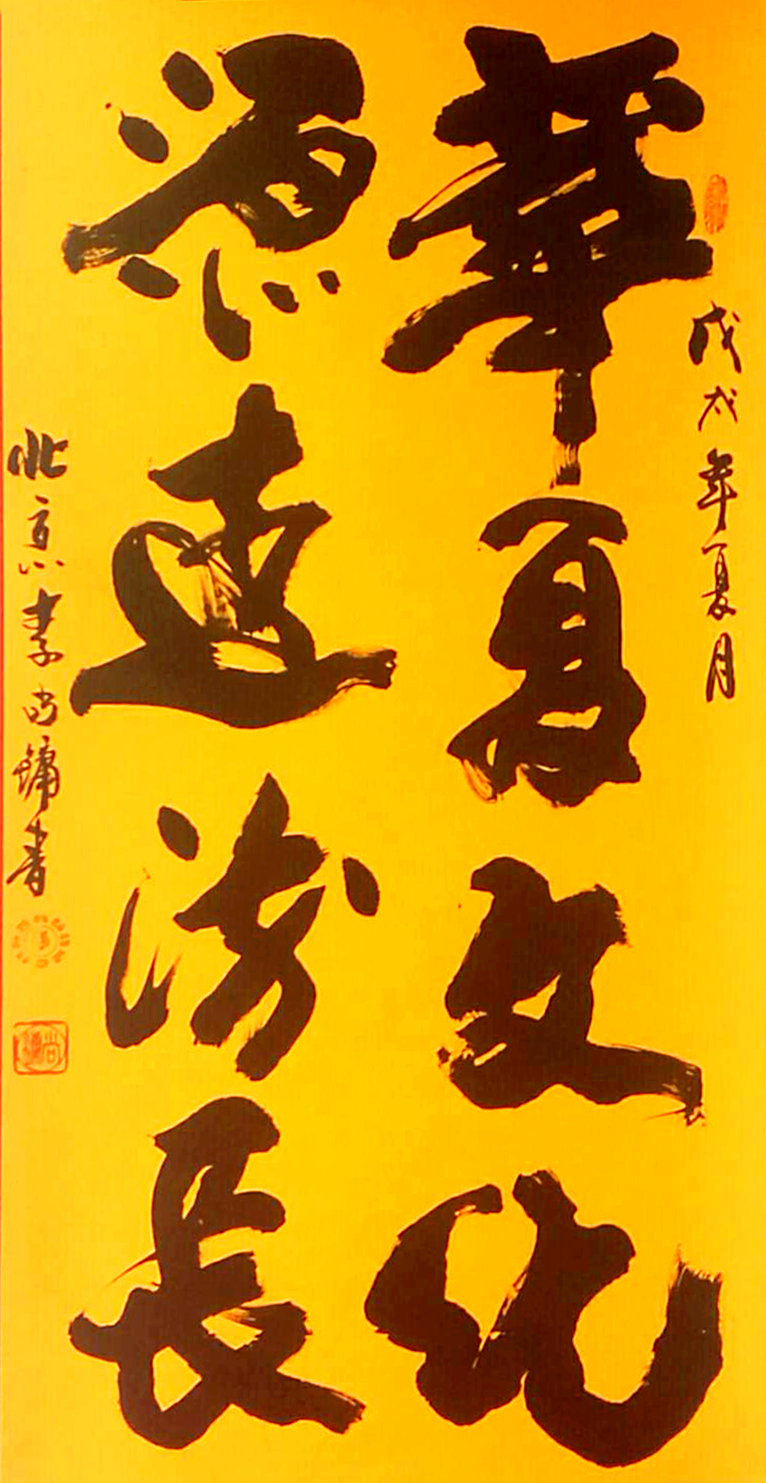 戊戌年夏月
華夏文化
源遠流長
北京李尚镛書